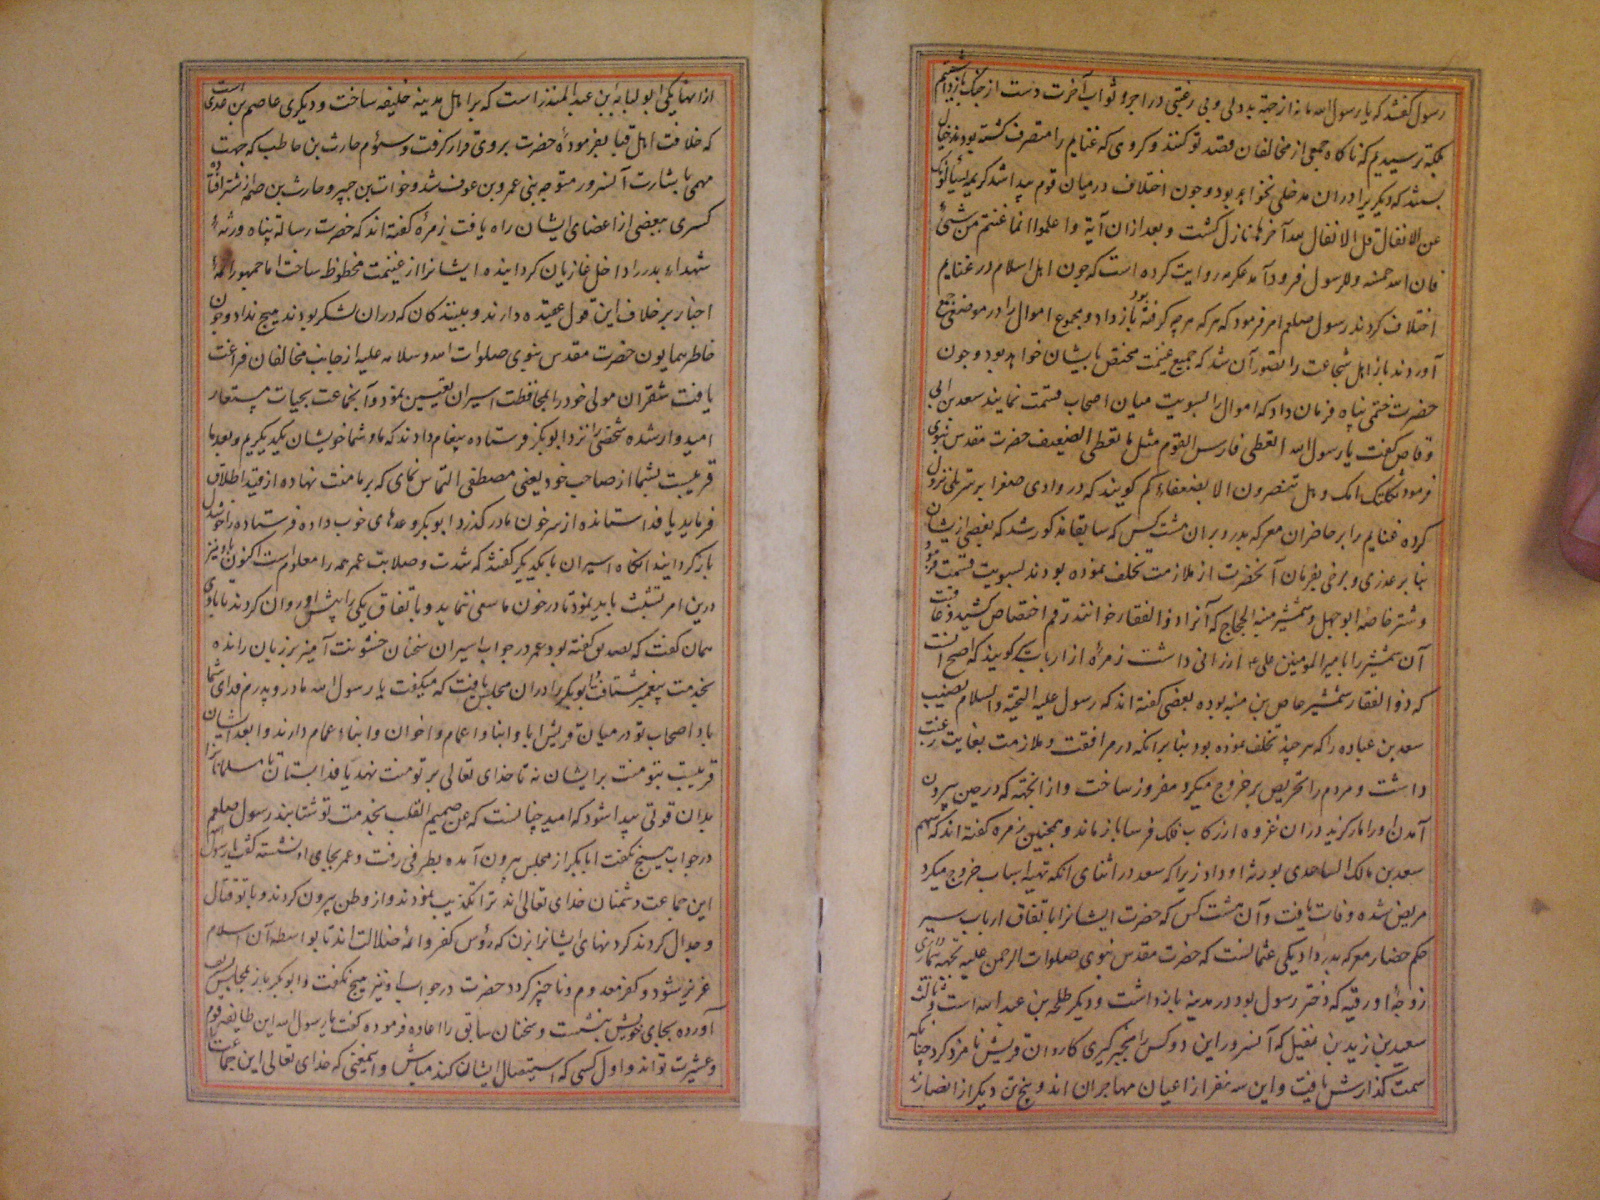 رسول گفتند که یا رسول الله ما نه از جهة بددلی و بی رغبتی در اجر و ثواب آخرت دست از جنک باز داشتیم
بلکه ترسیدیم که ناکاه جمعی از مخالفان قصد تو کنند و کروی که غنایم را متصرف کشته بودند خیال
بستند که دیکر برادران مدخلی نخواهد بود و چون اختلاف درمیان قوم پیدا شد کریمه یسئلونک
عن الانفال قل الانفال لله تا آخرها نازل کشت و بعد ازان آیة واعلموا انما غنتم من شیء
فان لله خمسه وللرسول فرود آمد عکرمه روایت کرده است که چون اهل اسلام در غنایم
اختلاف کردند رسول صلعم امر فرمود که هر که هر چه کرفته بود باز داد و مجموع اموال را در موضعی جمع
آوردند باز اهل شجاعت را تصور آن شد که جمیع غنیمت مختص بایشان خواهد بود و چون
حضرت ختمی پناه فرمان داد که اموال را بسویت میان اصحاب قسمت نمایند سعد بن ابی
وقاص گفت یا رسول الله اتعطی فارس القوم مثل ما تعطی الضعیف حضرت مقدس نبوی
فرمود ثکلتک امک وهل تنصرون الا بضعفائکم کویند که در وادی صفرا بر سر تلی نزول
کرده غنایم را بر حاضران معرکه بدر و بران هشت کس که سابقا مذکور شد که بعضی ازیشان
بنا بر عذری و برخی بفرمان آنحضرت از ملازمت تخلف نموده بودند بسویت قسمت فرمود
و شتر خاصه ابوجهل و شمشیر منبه الحجاج که آنرا ذوالفقار خوانند رقم اختصاص کشید و عاقبت
آن شمشیر را بامیر المومنین علی ارزانی داشت زمرهٔ از ارباب سیر کویند که اصح آنست
که ذوالفقار شمشیر عاص بن منبه بوده بعضی کفته اند که رسول علیه التحیة والسلام نصیب
سعد بن عباده را که هر چند تخلف نموده بود بنا برانکه در مرافقت و ملازمت بغایت رغبت
داشت و مردم را تحریص بر خروج میکرد مفروز ساخت و از انجهة که در حین بیرون
آمدن او را مار کزید دران غزوه از رکاب فلک فرسا باز ماند و همچنین زمره کفته اند که سهم
سعد بن مالک الساعدی بورثه او داد زیرا که سعد در اثنای انکه تهیهٔ اسباب خروج میکرد
مریض شده وفات یافت و آن هشت کس که حضرت ایشانرا باتفاق ارباب سیر
حکم حضار معرکه بدر داد یکی عثمانست که حضرت مقدس نبوی صلوات الرحمن علیه بجهة بیماری
زوجهٔ او رقیه که دختر رسول بود در مدینه باز داشت و دیکر طلحه بن عبدالله است و ثالث
سعید بن زید بن نفیل که آنسرور این دو کس را بخبر کیری کاروان قریش نامزد کرد چنانکه
سمت کذارش یافت و این سه نفر از اعیان مهاجران اند و پنج تن دیکر از انصارند
ازانها یکی ابولبابه ابن عبدالمنذر است که بر اهل مدینه خلیفه ساخت و دیکری عاصم بن عدی است
که خلافت اهل قبا بفرمودهٔ حضرت بر وی قرار کرفت و سیوم حارث بن حاطب که جهت
مهمی باشارت آنسرور متوجه بنی عمرو بن عوف شد و خوات بن جبیر و حارث بن صمه از شتر افتاده
کسری ببعضی از اعضای ایشان راه یافت زمرهٔ کفته اند که حضرت رسالة پناه ورثهٔ
شهداء بدر را داخل غازیان کردانیده ایشانرا از غنیمت محظوظ ساخت اما جمهور ائمهٔ
اخبار بر خلاف این قول عقیده دارند و ببندکان که دران لشکر بودند هیچ نداد و چون
خاطر همایون حضرت مقدس نبوی صلوات الله وسلامه علیه از جانب مخالفان فراغت
یافت شقران مولی خود را بمحافظت اسیران تعیین نمود و آنجماعت بحیات مستعار
امیدوار شده شخصی را نزد ابوبکر فرستاده پیغام دادند که ما و شما خویشان یکدیکریم و بعد ما
قریبست بشما از صاحب خود یعنی مصطفی التماس نمای که بر ما منت نهاده از قید اطلاق
فرماید یا فدا ستانده از سر خون ما در کذرد ابوبکر وعدهای خوب داده فرستاده را خوشدل
باز کردانید انکاه اسیران با یکدیکر کفتند که شدت و صلابت عمر همه را معلوم است اکنون با او نیز
درین امر تشبث باید نمود تا در خون ما سعی ننماید و باتفاق یکی را پیش او روان کردند تا با وی
همان کفت که بصدیق کفته بود عمر در جواب اسیران سخنان خشونت آمیز بر زبان رانده
بخدمت پیغمبر شتافت ابوبکر را دران مجلس یافت که میکفت یا رسول الله مادر و پدرم فدای شما
باد اصحاب تو در میان قریش ابا و ابنا و اعمام و اخوان و ابناء اعمام دارند و ابعد ایشان
قریبست بتو منت بر ایشان نه تا خدای تعالی بر تو منت نهد یا فدا بستان تا مسلمانانرا
بدان قوتی پیدا شود که امید چنانست که عن صمیم القلب بخدمت تو شتابند رسول صلعم
در جواب هیچ نکفت ابابکر از مجلس بیرون آمده بطرفی رفت و عمر بجای او نشسته کفت یا رسول الله
این جماعت دشمنان خدای تعالی اند ترا تکذیب نمودند و از وطن بیرون کردند و با تو قتال
و جدال کردند کردنهای ایشانرا بزن که رؤس کفر و ائمهٔ ضلالت اند تا بواسطه آن اسلام
عزیز شود و کفر معدوم و ناچیز کردد حضرت در جواب او نیز هیچ نکفت و ابوبکر باز بمجلس شریف
آورده بجای خویش بنشست و سخنان سابق را اعاده فرموده کفت یا رسول الله این طایفه قوم
و عشیرت تو اند و اول کسی که استیصال ایشان کند مباش واسمعنی که خدای تعالی این جماعت را